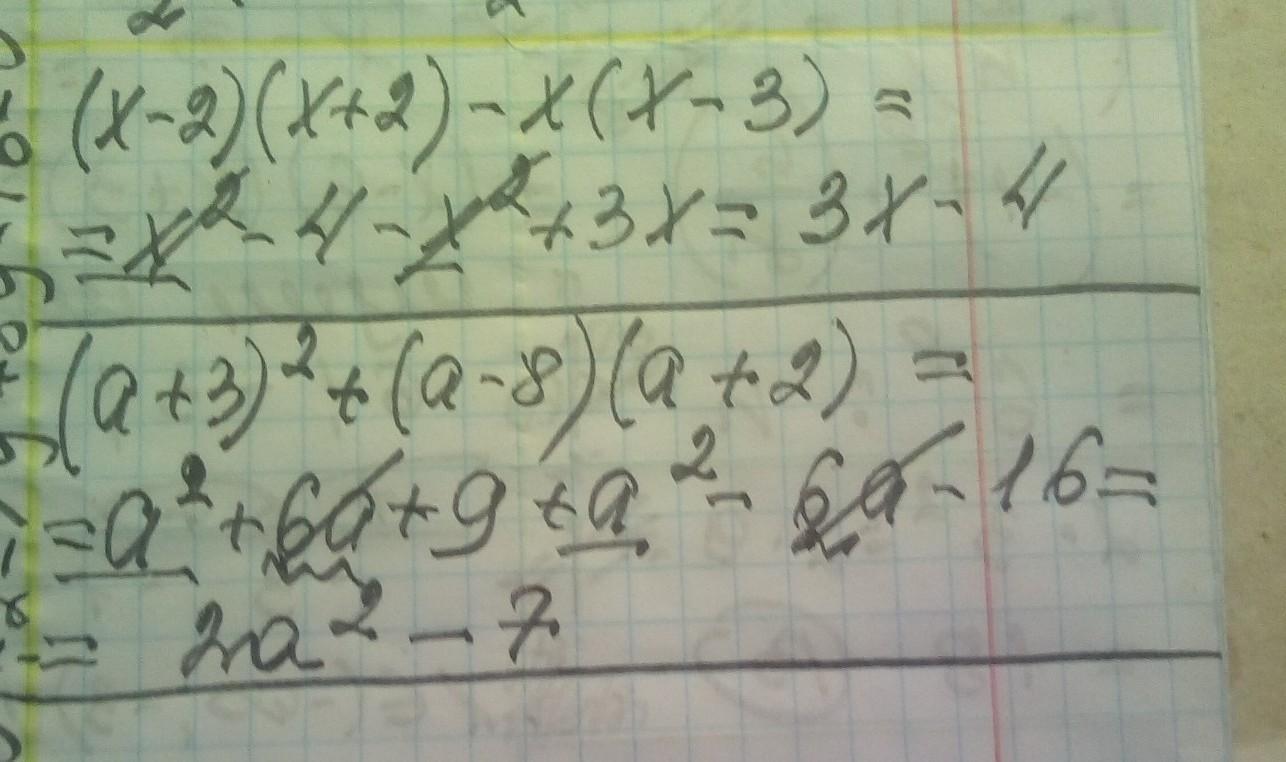 (x-2)(x+2)-x(x-3)=
=x²-4-x²+3x=3x-4
(a+3)²+(a-8)(a+2)=
=a²+6a+9+a²-6a-16=
=2a²-7